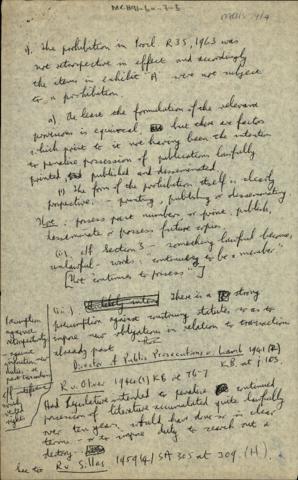 MCH91-60-7-5
4. The prohibition in Procl. R35, 1963 was
not retrospective in effect and accordingly
the items in exhibit A were not subject
to a prohibition
a) At least the formulation of the relevant
provision is equivocal, but there are factors
which point to it not having been the intention
to penalise possession of publications lawfully
printed, published and disseminated.
(i) The form of the prohibition itself is clearly
prospective: - printing, publishing or disseminating
Not: possess past numbers, or print, publish,
disseminate or possess future copies.
(ii) cff Section 3 - something lawful become
unlawful - words: "continues to be a member".
[Not "continues to possess"]
(iii) There is a strong
presumption against construing statutes so as to
impose new obligations in relation to transactions
already past
Director of Public Prosecutions v. Lamb 1941 (2)
KB at p. 103.
R v. Oliver 1944 (1) KB at 76-7
Presumption
against
retrospectivity
- against
new
duties
past
rights
Had legislature intended to penalise continued
possession of literature accumulated quite lawfully
over ten years, would have done so in clear
terms - or to impose duty to search out &
destroy.
See too R v. Sillas 1959 (4) SA 305 at 309 (H).